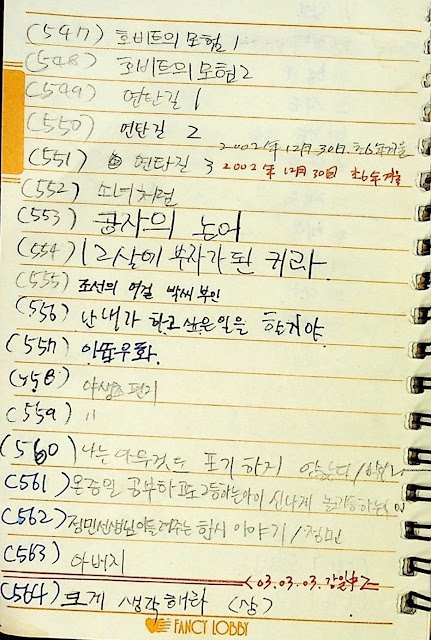 (547) 호비트의 모험 1
(548) 호비트의 모험 2
(549) 연탄길 1
(550) 연탄길 2
2002년 12月 30日 초6 겨울
(551) 연탄길 3 2002년 12月 30日 초6 겨울
(552) 소녀처럼
(553) 공자의 논어
(554) 12살에 부자가 된 키라
(555) 조선의 여걸 박씨부인
(556) 난 내가 하고 싶은 일을 할거야
(557) 이솝우화
(558) 야생초 편지
(559) 〃
(560) 나는 아무것도 포기하지 않았다 /
(561) 온종일 공부하고도 2등하는 아이 신나게 놀고 1등하는
(562) 정민선생님이 들려주는 한시 이야기 / 정민
(563) 아버지
03.03.03. 강일中
(564) 크게 생각해라 (상)
FANCY LOBBY